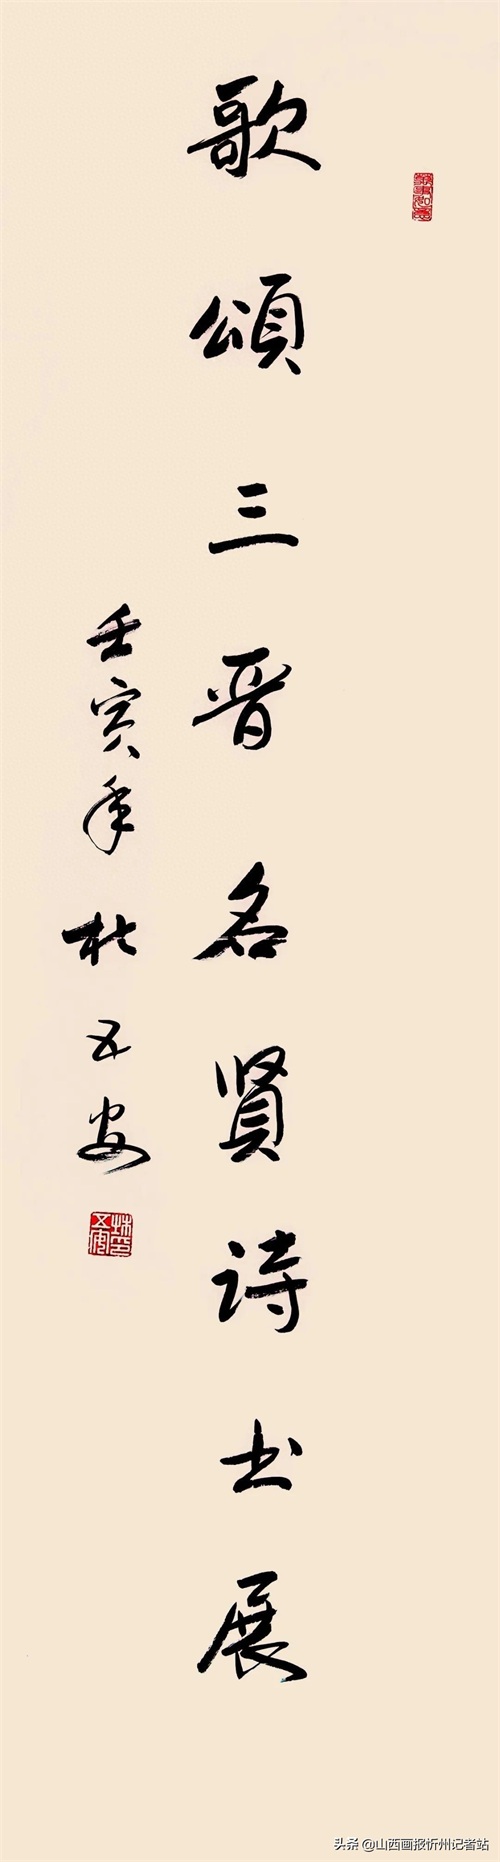 歌頌三晋名贤诗书展
壬寅年杜五安
头条 @山西画报忻州记者站